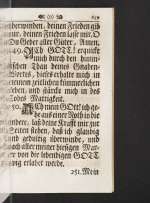 (o)
überwinden, deinen Frieden gib
mir, deinen Frieden lasse mir. O
Du Geber aller Güter, Amen.
249. Ach GOTT! erquicke
mich durch den himm-
lischen Thau deines Gnaden-
Wortes, dieses erhalte mich in
meinem zeitlichen kümmerlichen
Leben, und stärcke mich in des
Todes Mattigkeit.
250. Mein Gott! ich ge-
he aus einer Noth in die
andere, laß deine Krafft mir zur
Seiten stehen, daß ich glaubig
und gedultig überwinde, und
nach aller meiner hiesigen Mar-
ter von dir lebendigen GOTT
erlabet werde.
251. Mein